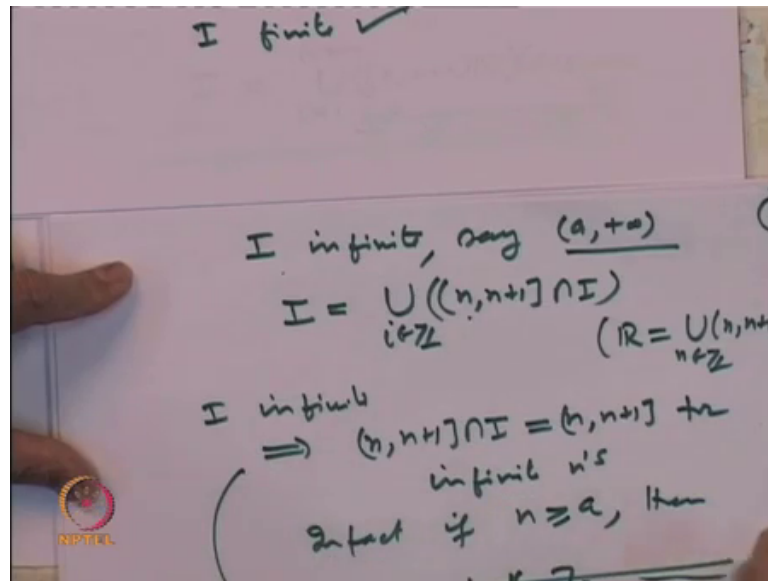 I finite ✓
I infinite, say (a, +∞)
I = ⋃ ((n, n+1] ∩ I)
i∈ℤ
(ℝ = ⋃ (n, n+
n∈ℤ
I infinite
⟹ (n, n+1] ∩ I = (n, n+1] for
infinite n's
Infact if n ≥ a, then
NPTEL